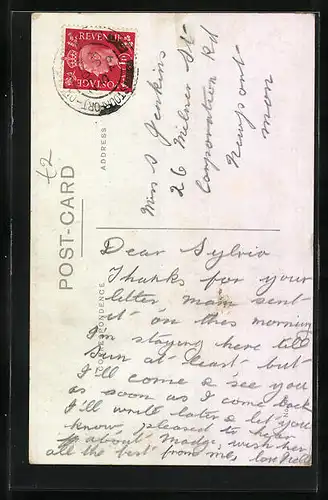 REVENUE
POSTAGE
42
POST-CARD
ADDRESS
CORRESPONDENCE
Miss S Jenkins
26 Milner St
Corporation Rd
Newport
mon
Dear Sylvia
Thanks for your
letter, mam sent
it on this morning
I'm staying here till
Sun at least but
I'll come & see you
as soon as I come back
I'll write later & let you
know, pleased to hear
about Madge, wish her
all the best from me, love